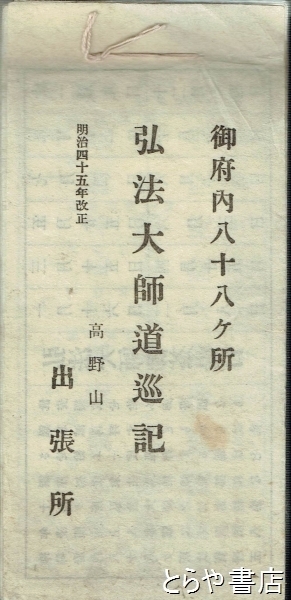 御府內八十八ケ所
弘法大師道巡記
明治四十五年改正
高野山
出張所
とらや書店